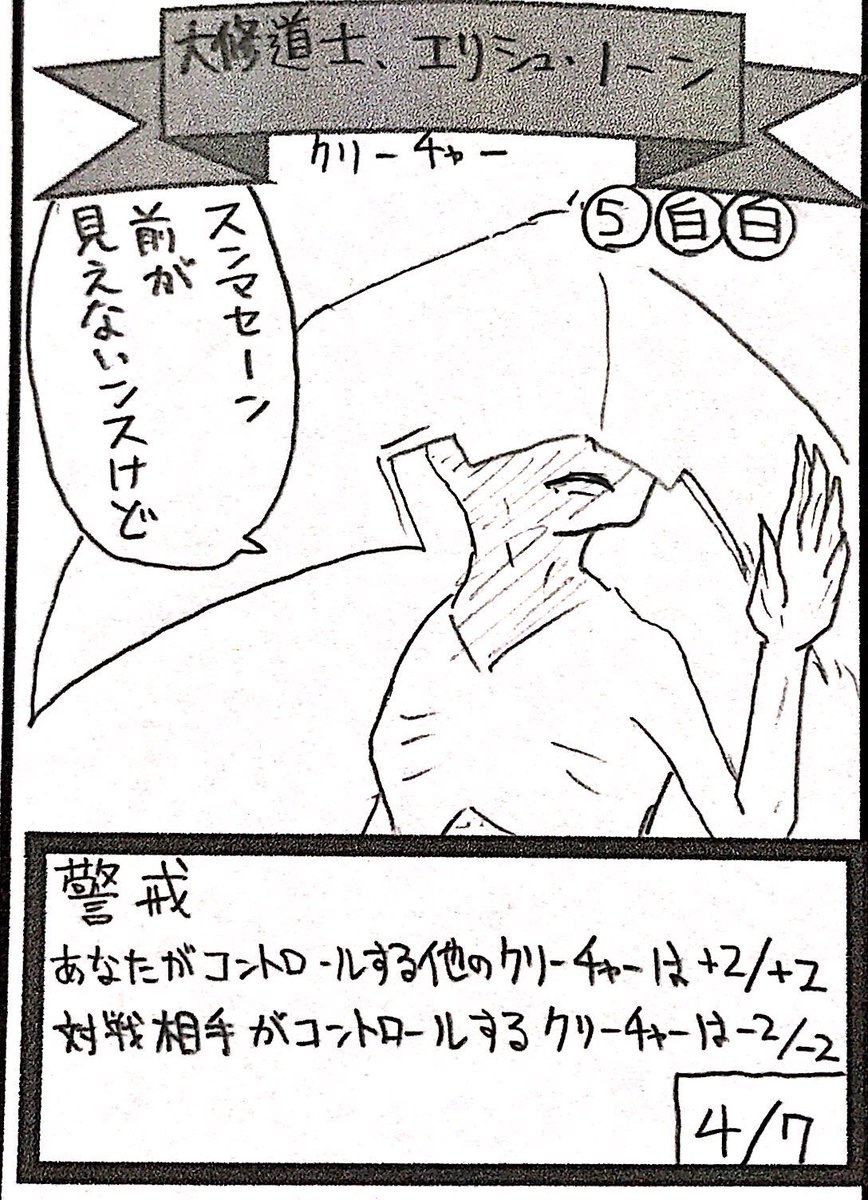 大修道士、エリシュ・ノーン
クリーチャー
5白白
スンマセーン
前が
見えないンスけど
警戒
あなたがコントロールする他のクリーチャーは+2/+2
対戦相手がコントロールするクリーチャーは-2/-2
4/7